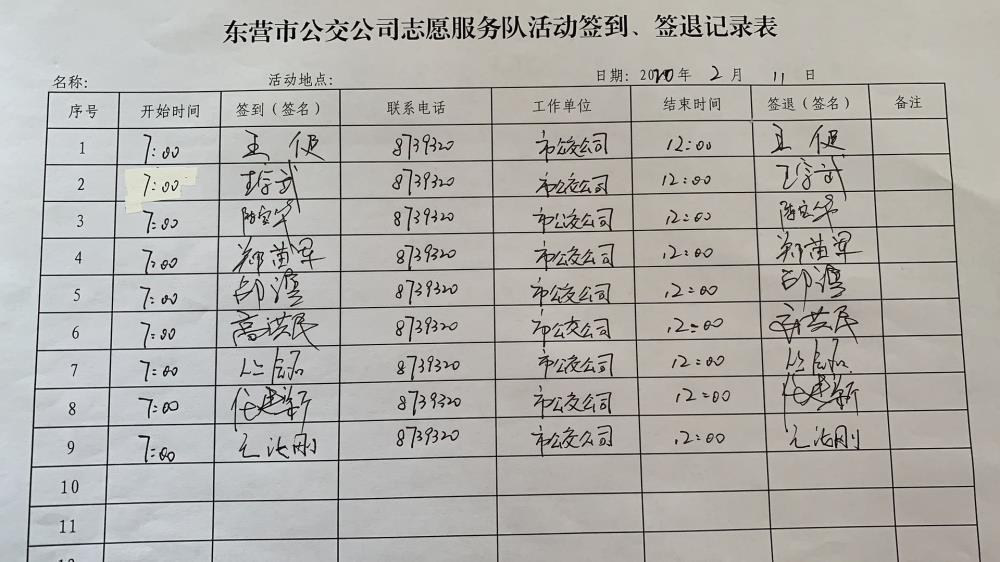 东营市公交公司志愿服务队活动签到、签退记录表
名称: 活动地点: 日期: 2020年 2 月 11 日
序号 开始时间 签到（签名） 联系电话 工作单位 结束时间 签退（签名） 备注
1 7:00 王 8739320 市公交公司 12:00 王
2 7:00 8739320 市公交公司 12:00
3 7:00 陈宝华 8739320 市公交公司 12:00 陈宝华
4 7:00 郑苗军 8739320 市公交公司 12:00 郑苗军
5 7:00 8739320 市公交公司 12:00
6 7:00 高洪民 8739320 市公交公司 12:00 高洪民
7 7:00 8739320 市公交公司 12:00
8 7:00 任建新 8739320 市公交公司 12:00 任建新
9 7:00 8739320 市公交公司 12:00
10
11